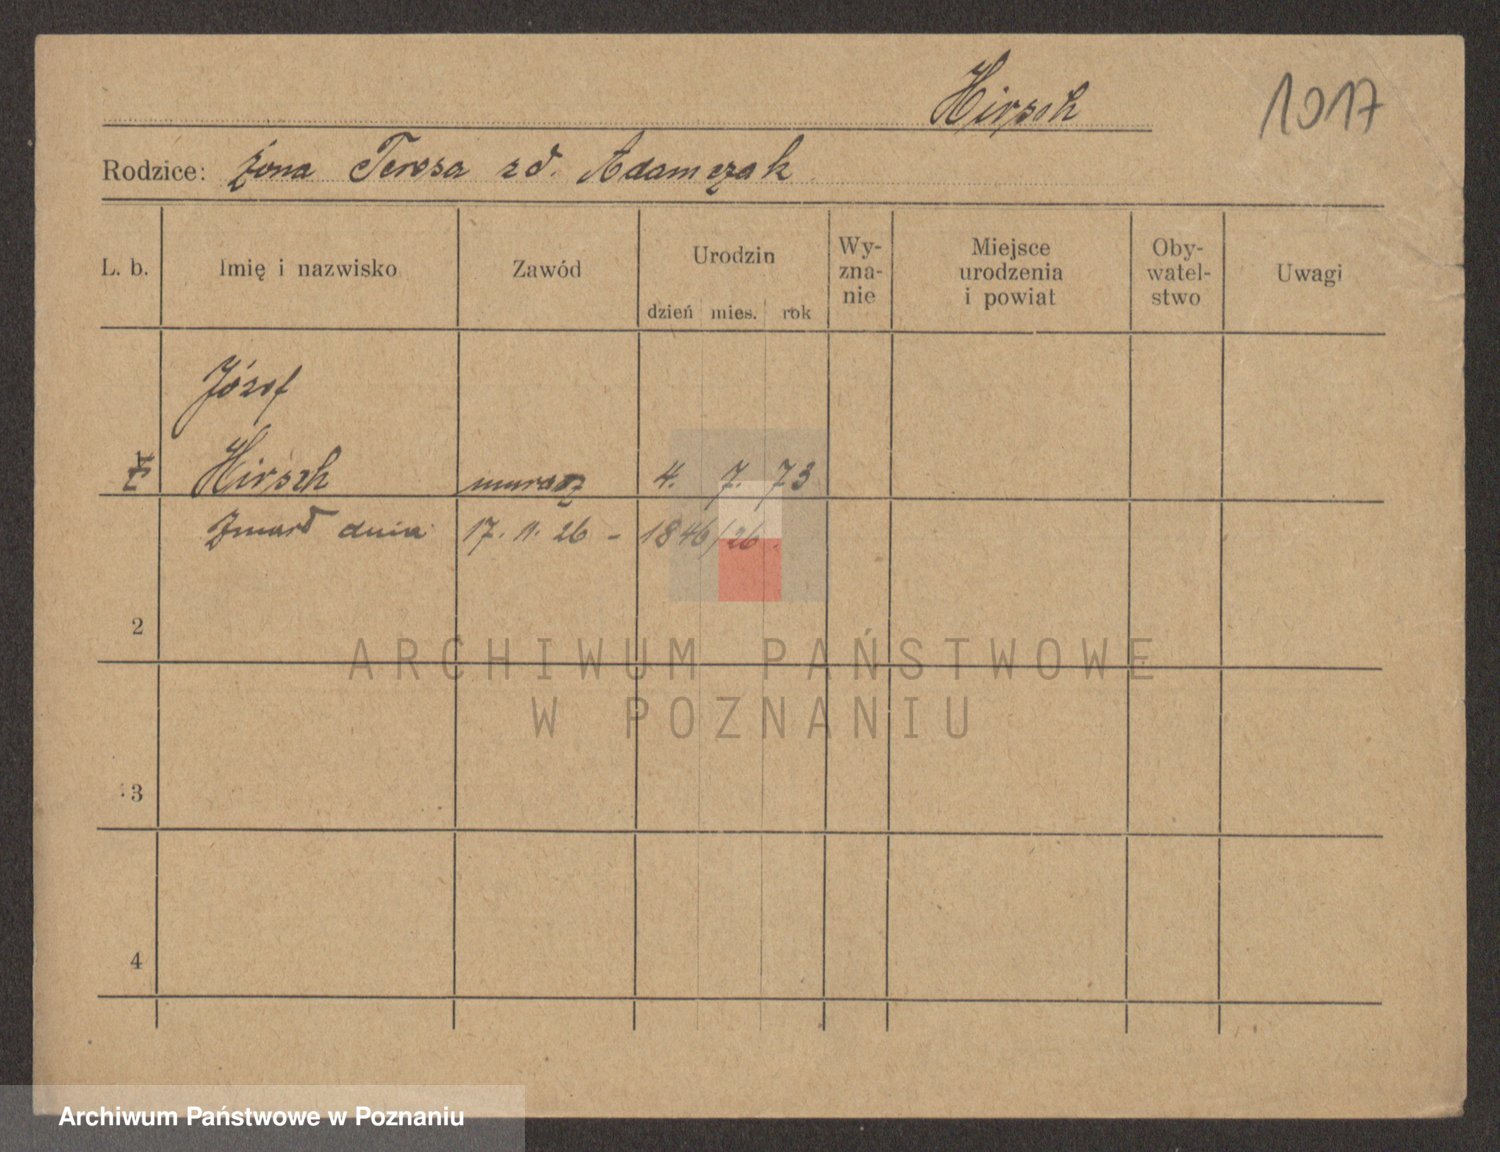 Hirsch
1917
Rodzice: żona Teresa zd. Adamczak
L. b. Imię i nazwisko Zawód Urodzin dzień mies. rok Wy-zna-nie Miejsce urodzenia i powiat Oby-watel-stwo Uwagi
Józef
Hirsch murarz 4. 7. 73
Zmarł dnia 17. 11. 26 - 1846/26.
2
ARCHIWUM PAŃSTWOWE
W POZNANIU
3
4
Archiwum Państwowe w Poznaniu